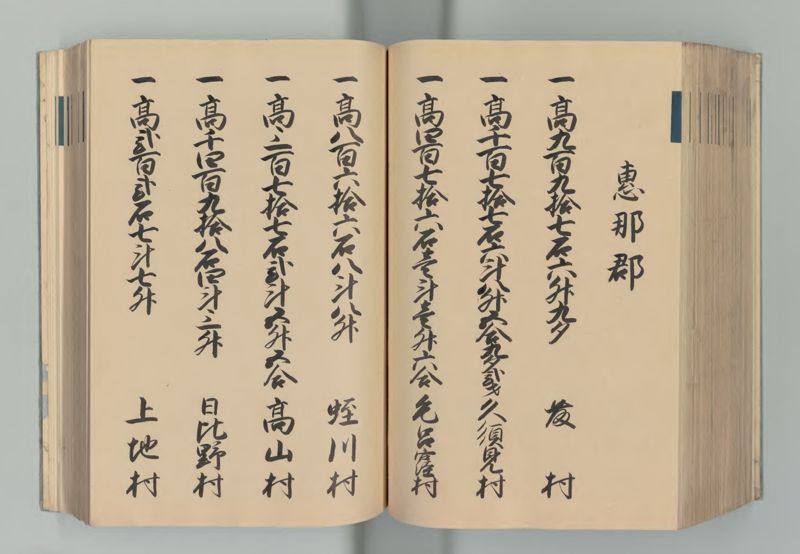 惠那郡
一 高九百九拾七石六升九夕 茂村
一 高千百七拾七石六斗八升五合九夕弐才 久須見村
一 高四百七拾六石壱斗壱升六合 毛呂窪村
一 高八百六拾六石八斗八升 蛭川村
一 高三百七拾七石弐斗五升五合 高山村
一 高千四百九拾八石四斗三升 日比野村
一 高弐百弐石七斗七升 上地村